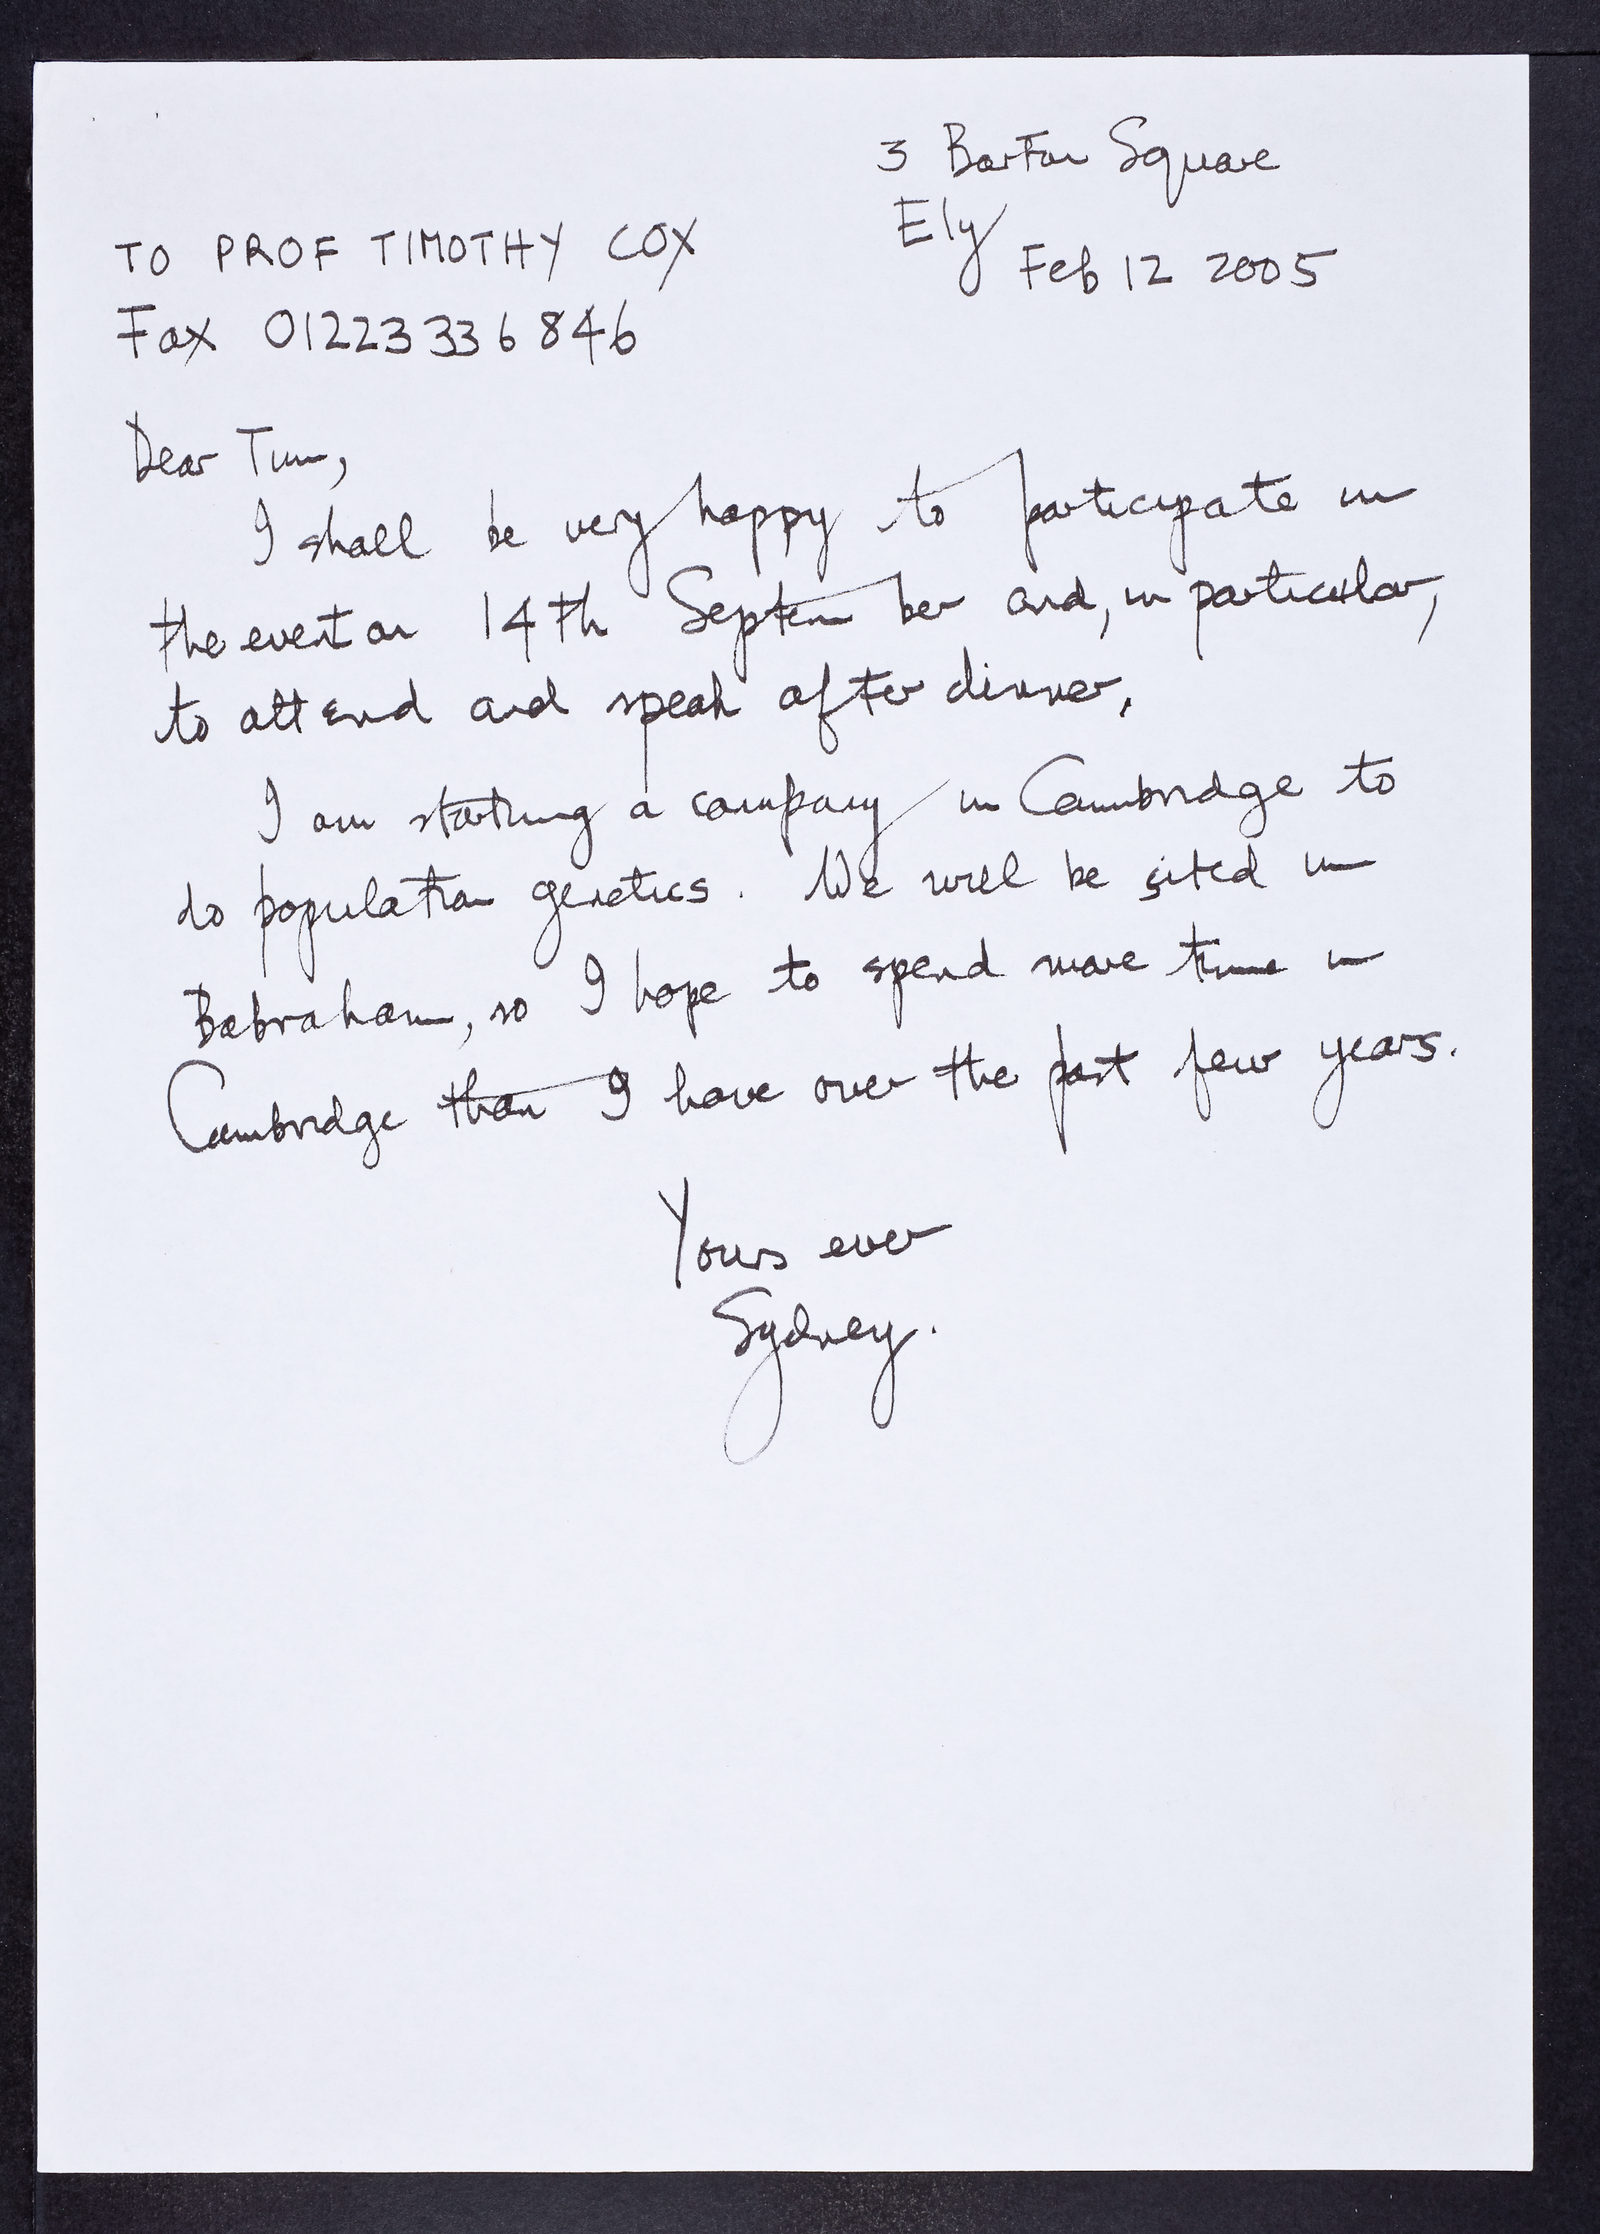 3 Barton Square
Ely
Feb 12 2005
TO PROF TIMOTHY COX
Fax 01223 336 846
Dear Tim,
I shall be very happy to participate in
the event on 14th September and, in particular,
to attend and speak after dinner.
I am starting a company in Cambridge to
do population genetics. We will be sited in
Babraham, so I hope to spend more time in
Cambridge than I have over the past few years.
Yours ever
Sydney.